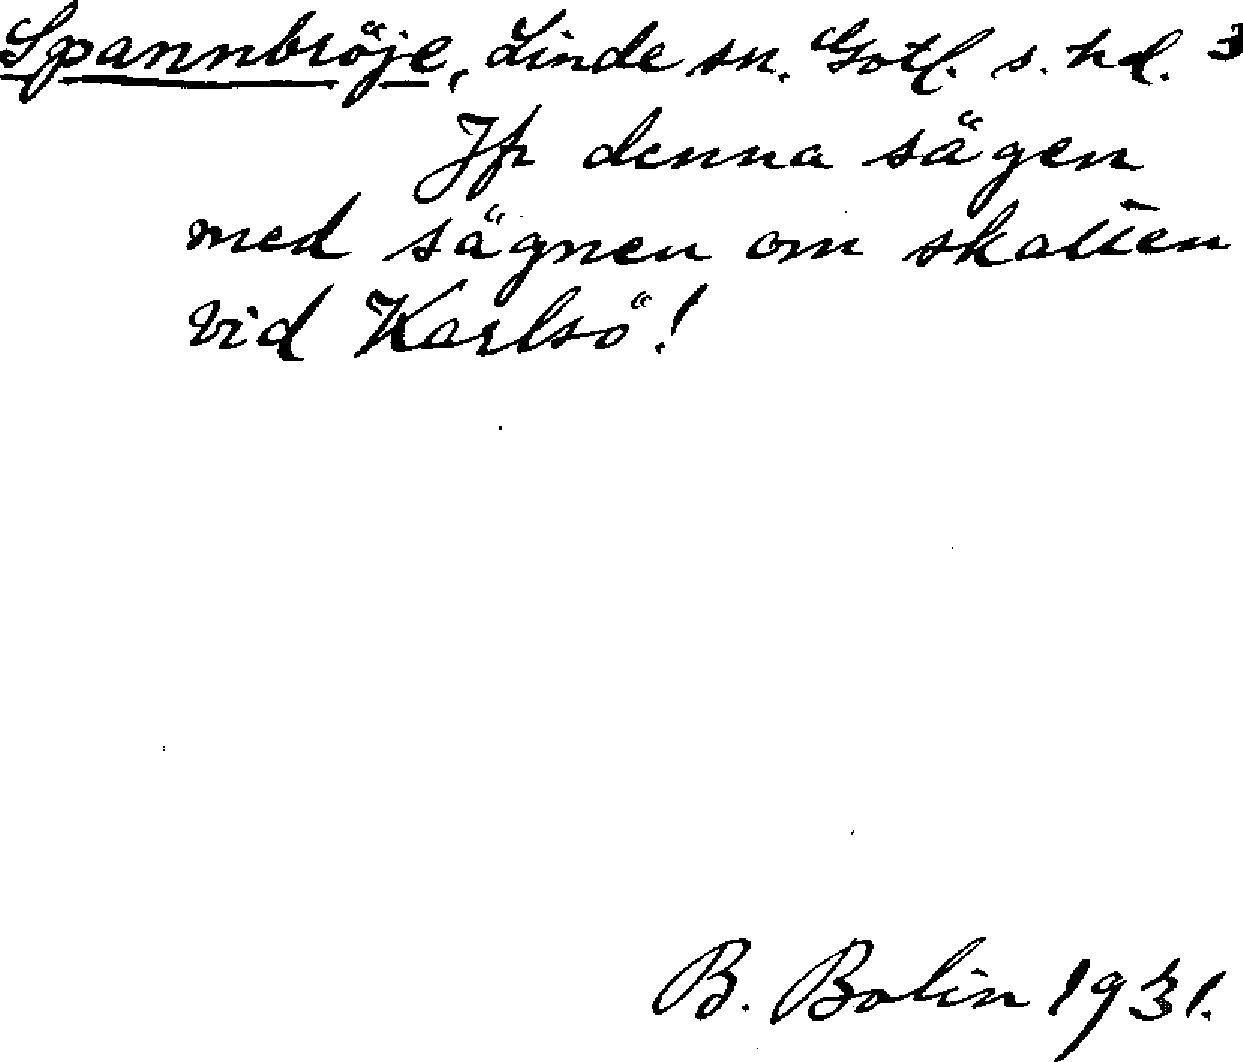 Spannbröje, Linde sn. Gotl. s. hd. 3
Jfr denna sägen
med sägnen om skatten
vid Karlsö!
B. Bolin 1931.